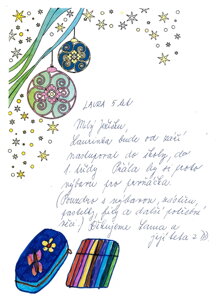 LAURA 5 let
Milý Ježíšku,
Laurinka bude od září
nastupovat do školy, do
1. třídy. Přála by si proto
výbavu pro prvňáčka.
(Pouzdro s výbavou, nůžtičku,
pastelky, fixy a další potřebné
věci) Děkujeme Laura a
její teta z